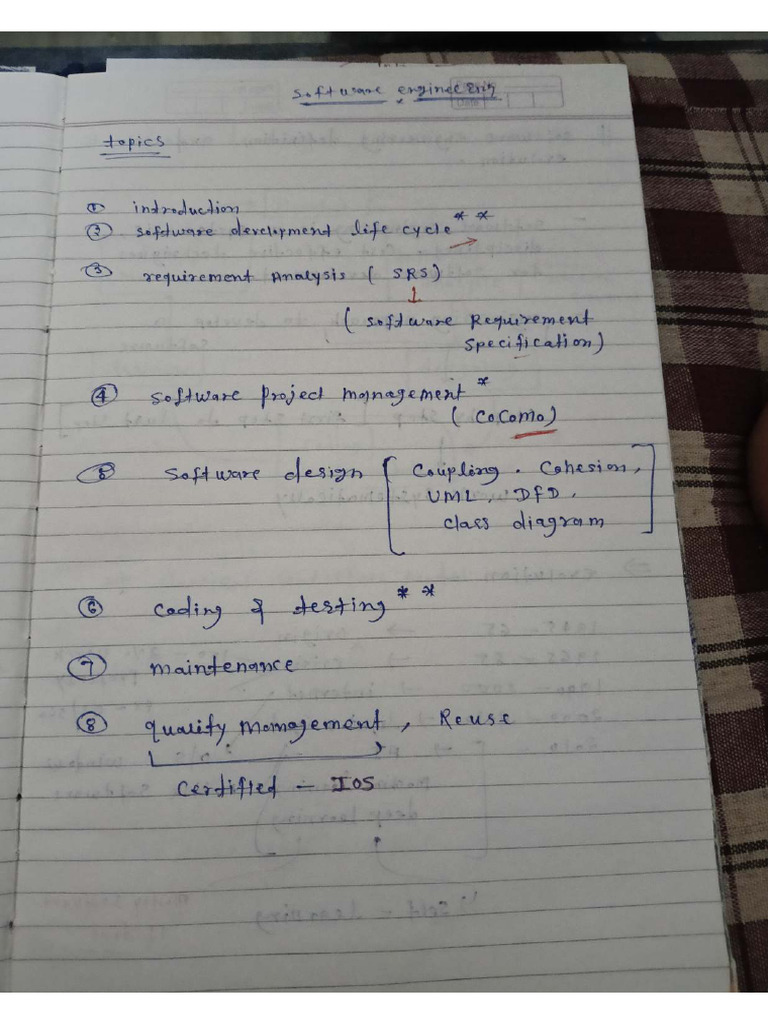 Software engineering
topics
① introduction
② software development life cycle * *
③ requirement Analysis ( SRS )
( Software Requirement
Specification )
④ Software Project Management *
( COCOMO )
⑤ Software design [ Coupling . Cohesion ,
UML , DFD ,
class diagram ]
⑥ Coding & testing * *
⑦ maintenance
⑧ quality Management , Reuse
Certified - IOS